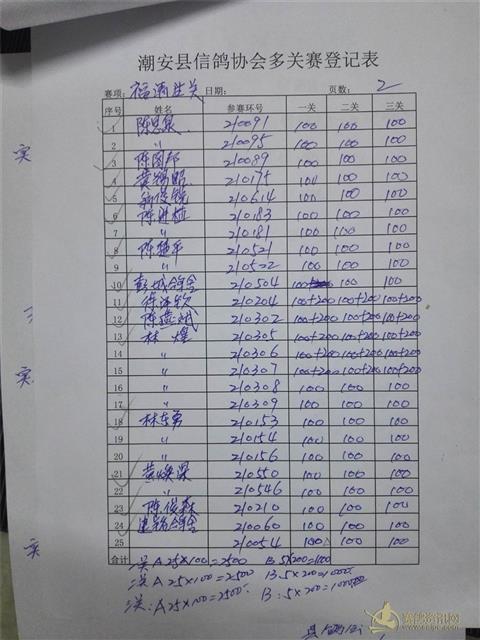 潮安县信鸽协会多关赛登记表
赛项: 福清三关 日期: 页数: 2
序号 姓名 参赛环号 一关 二关 三关
1 陈思泉 210091 100 100 100
2 〃 210095 100 100 100
3 陈国邦 210089 100 100 100
4 黄锡昭 210175 100 100 100
5 210614 100 100 100
6 陈进植 210183 100 100 100
7 〃 210181 100 100 100
8 陈楚平 210521 100 100 100
9 〃 210522 100 100 100
10 彭城鸽舍 210504 100 100 100
11 210204 100+200 100+200 100+200
12 210302 100+200 100+200 100+200
13 林煌 210305 100+200 100+200 100+200
14 〃 210306 100+200 100+200 100+200
15 〃 210307 100+200 100+200 100+200
16 〃 210308 100 100 100
17 〃 210309 100 100 100
18 林东弟 210153 100 100 100
19 〃 210154 100 100 100
20 〃 210156 100 100 100
21 黄焕梁 210550 100 100 100
22 〃 210546 100 100 100
23 陈俊森 210210 100 100 100
24 建锦鸽舍 210060 100 100 100
25 210054 100 100 100
合计
A 25×100=2500 B 5×200=1000
A 25×100=2500 B:5×200=1000
A 25×100=2500 B:5×200=1000
实
实
实
赛鸽资讯网